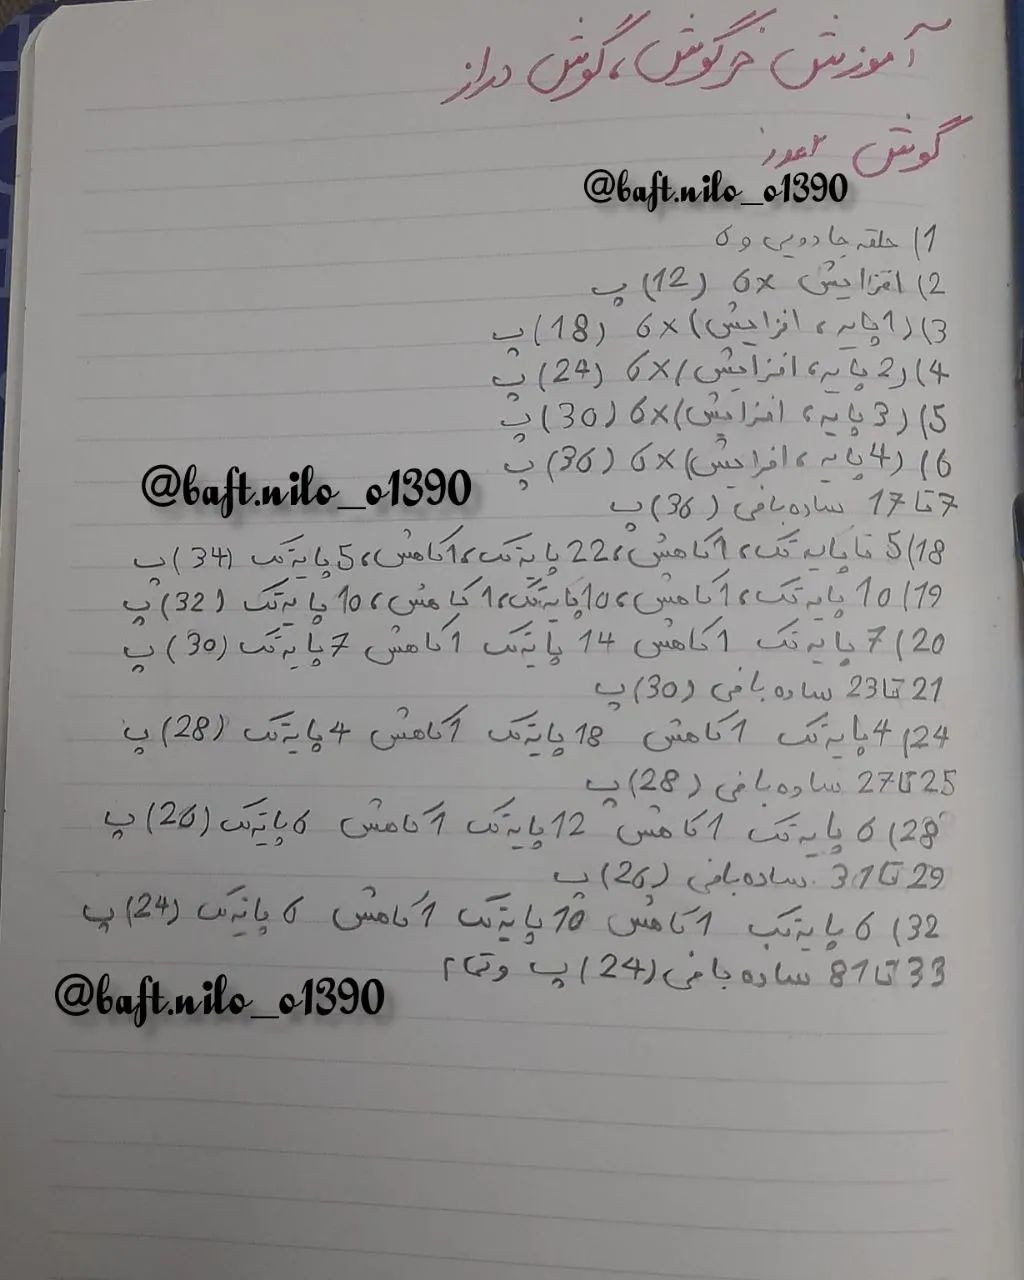 آموزش خرگوش، گوش دراز
گوش ۲عدد
@baft.nilo_o1390
1) حلقه جادویی و 6
2) افزایش 6x (12) پ
3) (1 پایه، افزایش) 6x (18) پ
4) (2 پایه، افزایش) 6x (24) پ
5) (3 پایه، افزایش) 6x (30) پ
6) (4 پایه، افزایش) 6x (36) پ
@baft.nilo_o1390
7 تا 17 ساده بافی (36) پ
18) 5 تا پایه تک، 1 کاهش، 22 پایه تک، 1 کاهش، 5 پایه تک (34) پ
19) 10 پایه تک، 1 کاهش، 10 پایه تک، 1 کاهش، 10 پایه تک (32) پ
20) 7 پایه تک 1 کاهش 14 پایه تک 1 کاهش 7 پایه تک (30) پ
21 تا 23 ساده بافی (30) پ
24) 4 پایه تک 1 کاهش 18 پایه تک 1 کاهش 4 پایه تک (28) پ
25 تا 27 ساده بافی (28) پ
28) 6 پایه تک 1 کاهش 12 پایه تک 1 کاهش 6 پایه تک (26) پ
29 تا 31 ساده بافی (26) پ
32) 6 پایه تک 1 کاهش 10 پایه تک 1 کاهش 6 پایه تک (24) پ
33 تا 81 ساده بافی (24) پ وتمام
@baft.nilo_o1390